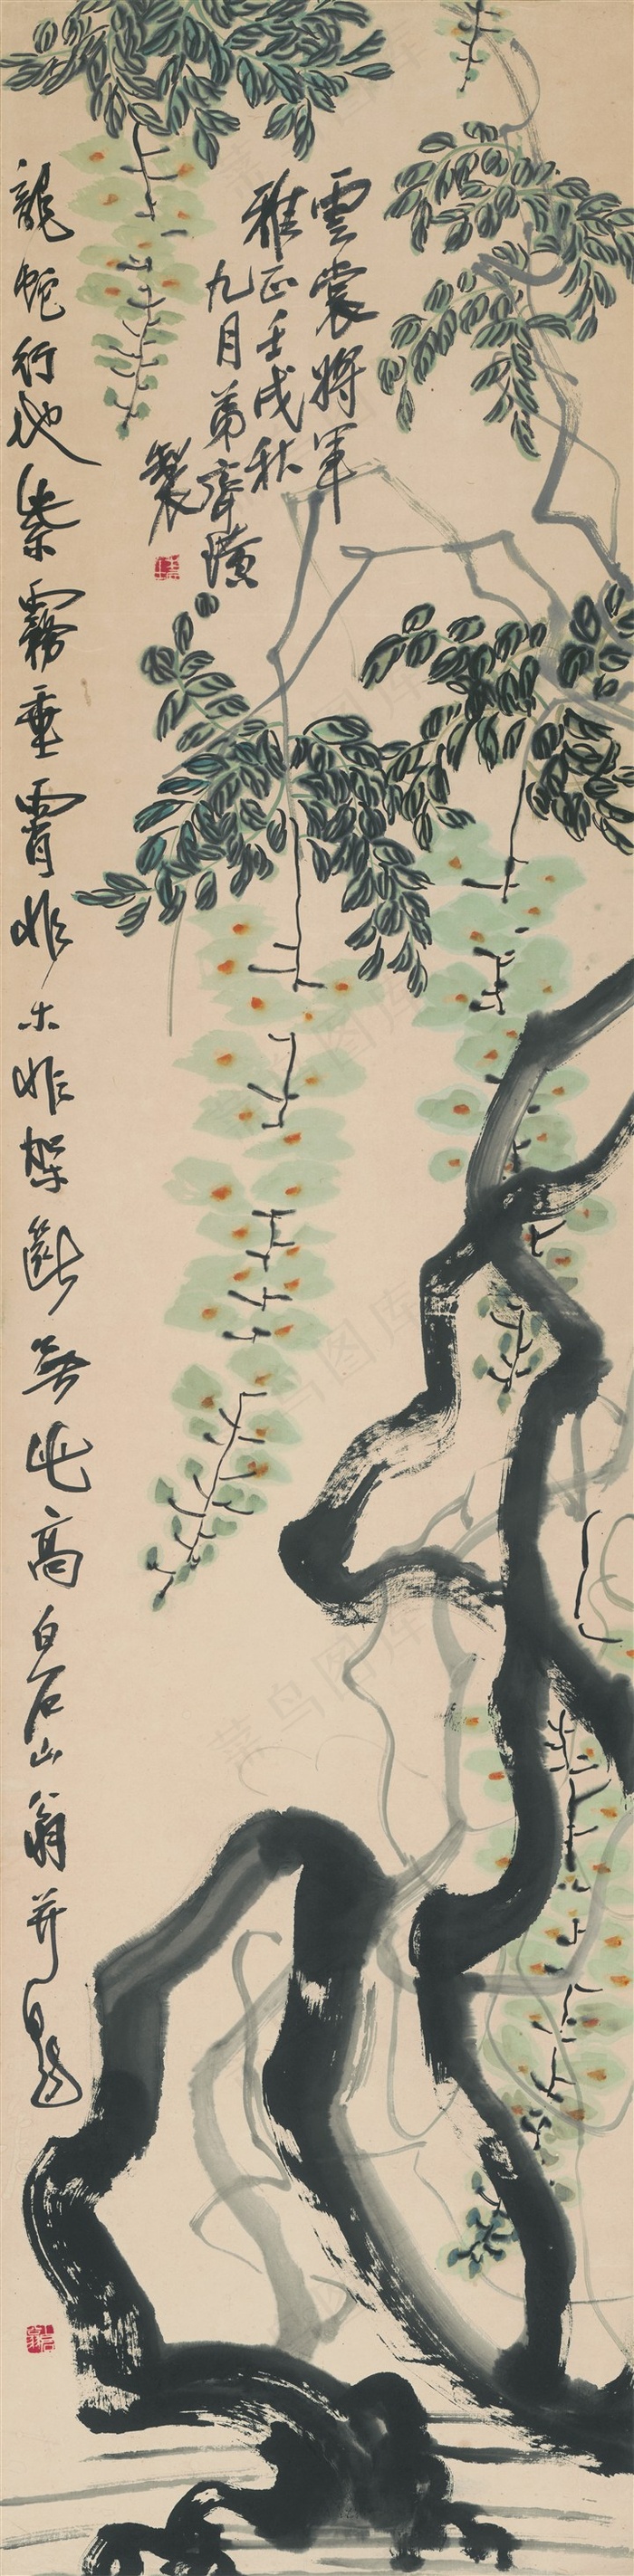 雲裳將軍
雅正壬戌秋
九月弟齊璜
製
龍蛇行地紫霧垂霄非木非架斷無此高白石山翁并題
菜鸟图库